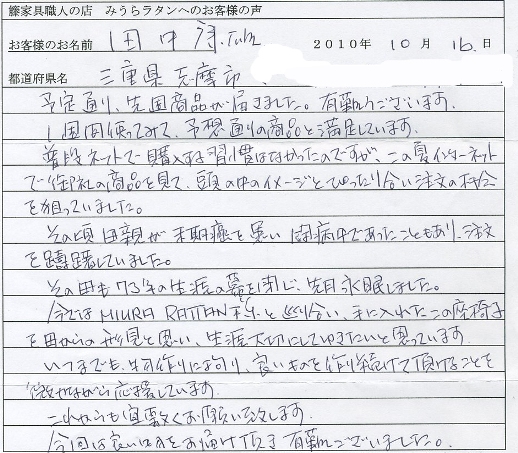 籐家具職人の店 みうらラタンへのお客様の声
お客様のお名前 田中 2010年 10月 16日
都道府県名 三重県志摩市
予定通り、先週商品が届きました。有難うございます。
1週間使ってみて、予想通りの商品と満足しています。
普段ネットで購入する習慣はなかったのですが、この夏インターネット
で御社の商品を見て、頭の中のイメージとぴったり合い注文の機会
を狙っていました。
その頃 母親が末期癌を患い 闘病中であったこともあり、注文
を躊躇していました。
その母も73年の生涯の幕を閉じ、先月永眠しました。
今ではMIURA RATTAN様と巡り合い、手に入れたこの座椅子
を母からの形見と思い、生涯大切にしてゆきたいと思っています。
いつまでも、物作りに拘り、良いものを作り続けて頂けることを
微力ながら応援しています。
これからも宜敷くお願い致します。
今回は良い品をお届け頂き有難うございました。